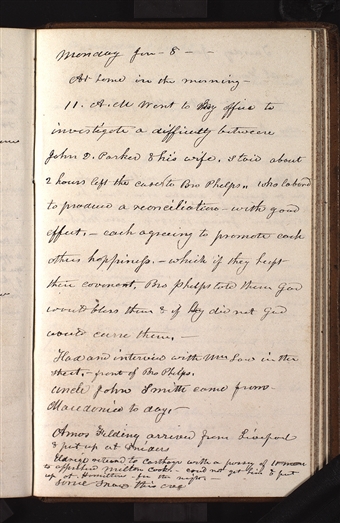 Monday Jan - 8 - -
At home in the morning -
11. A.M Went to My office to
investigate a difficulty between
John D. Parker & his wife. Staid about
2 hours left the case to Bro Phelps,, who labord
to produce a reconciliation - with good
effect, - each agreeing to promote each
others happiness. - which if they kept
their covenant, Bro Phelps told them God
would bless them & if they did not God
would curse them, -
Had an interview with Wm Law in the
street, - front of Bro Phelps.
uncle John Smith came from
Macedonia to day, -
Amos Fielding arrived from Liverpool
& put up at Sniders
returned to Carthage with a possey of 10 more
to apprehend Milton Cook. - could not get him & put
up at Hamiltons - for the night -
Some Snow this eve